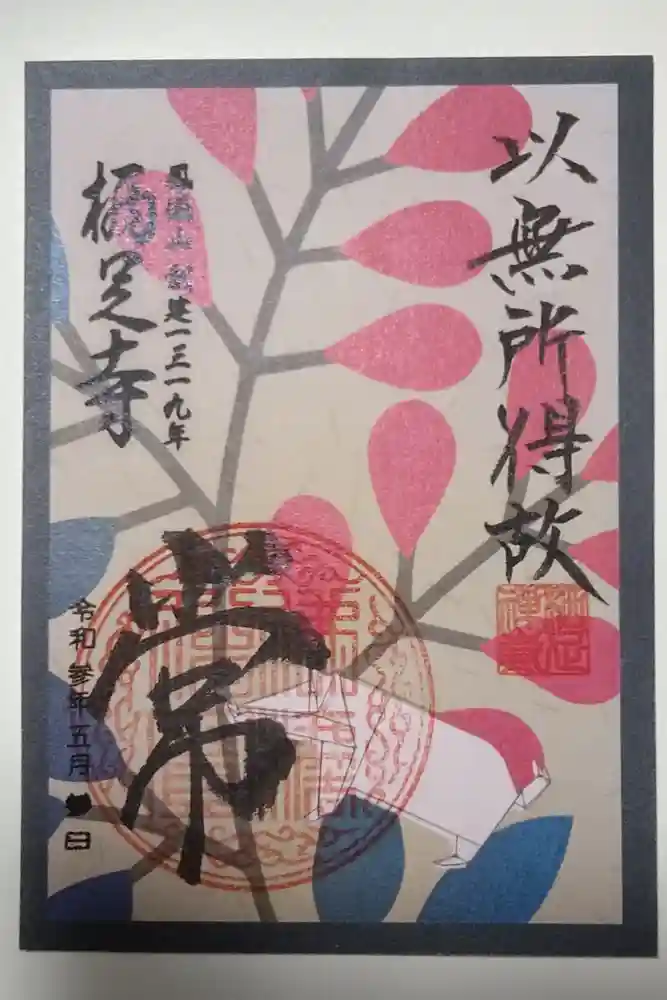 以無所得故
創建一三一九年
栖足寺
常
令和参年五月 日